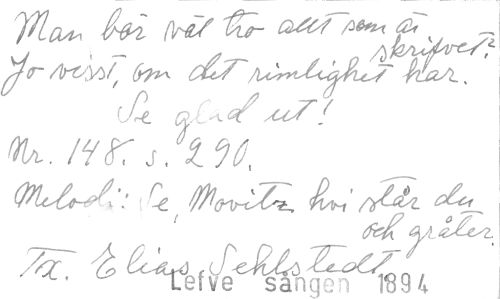 Man bör väl tro allt som är
skrifvet?
Jo visst, om det rimlighet har.
Se glad ut!
Nr. 148. s. 290.
Melodi: Se, Movitz hvi står du
och gråter.
Tx. Elias Sehlstedt
Lefve sången 1894